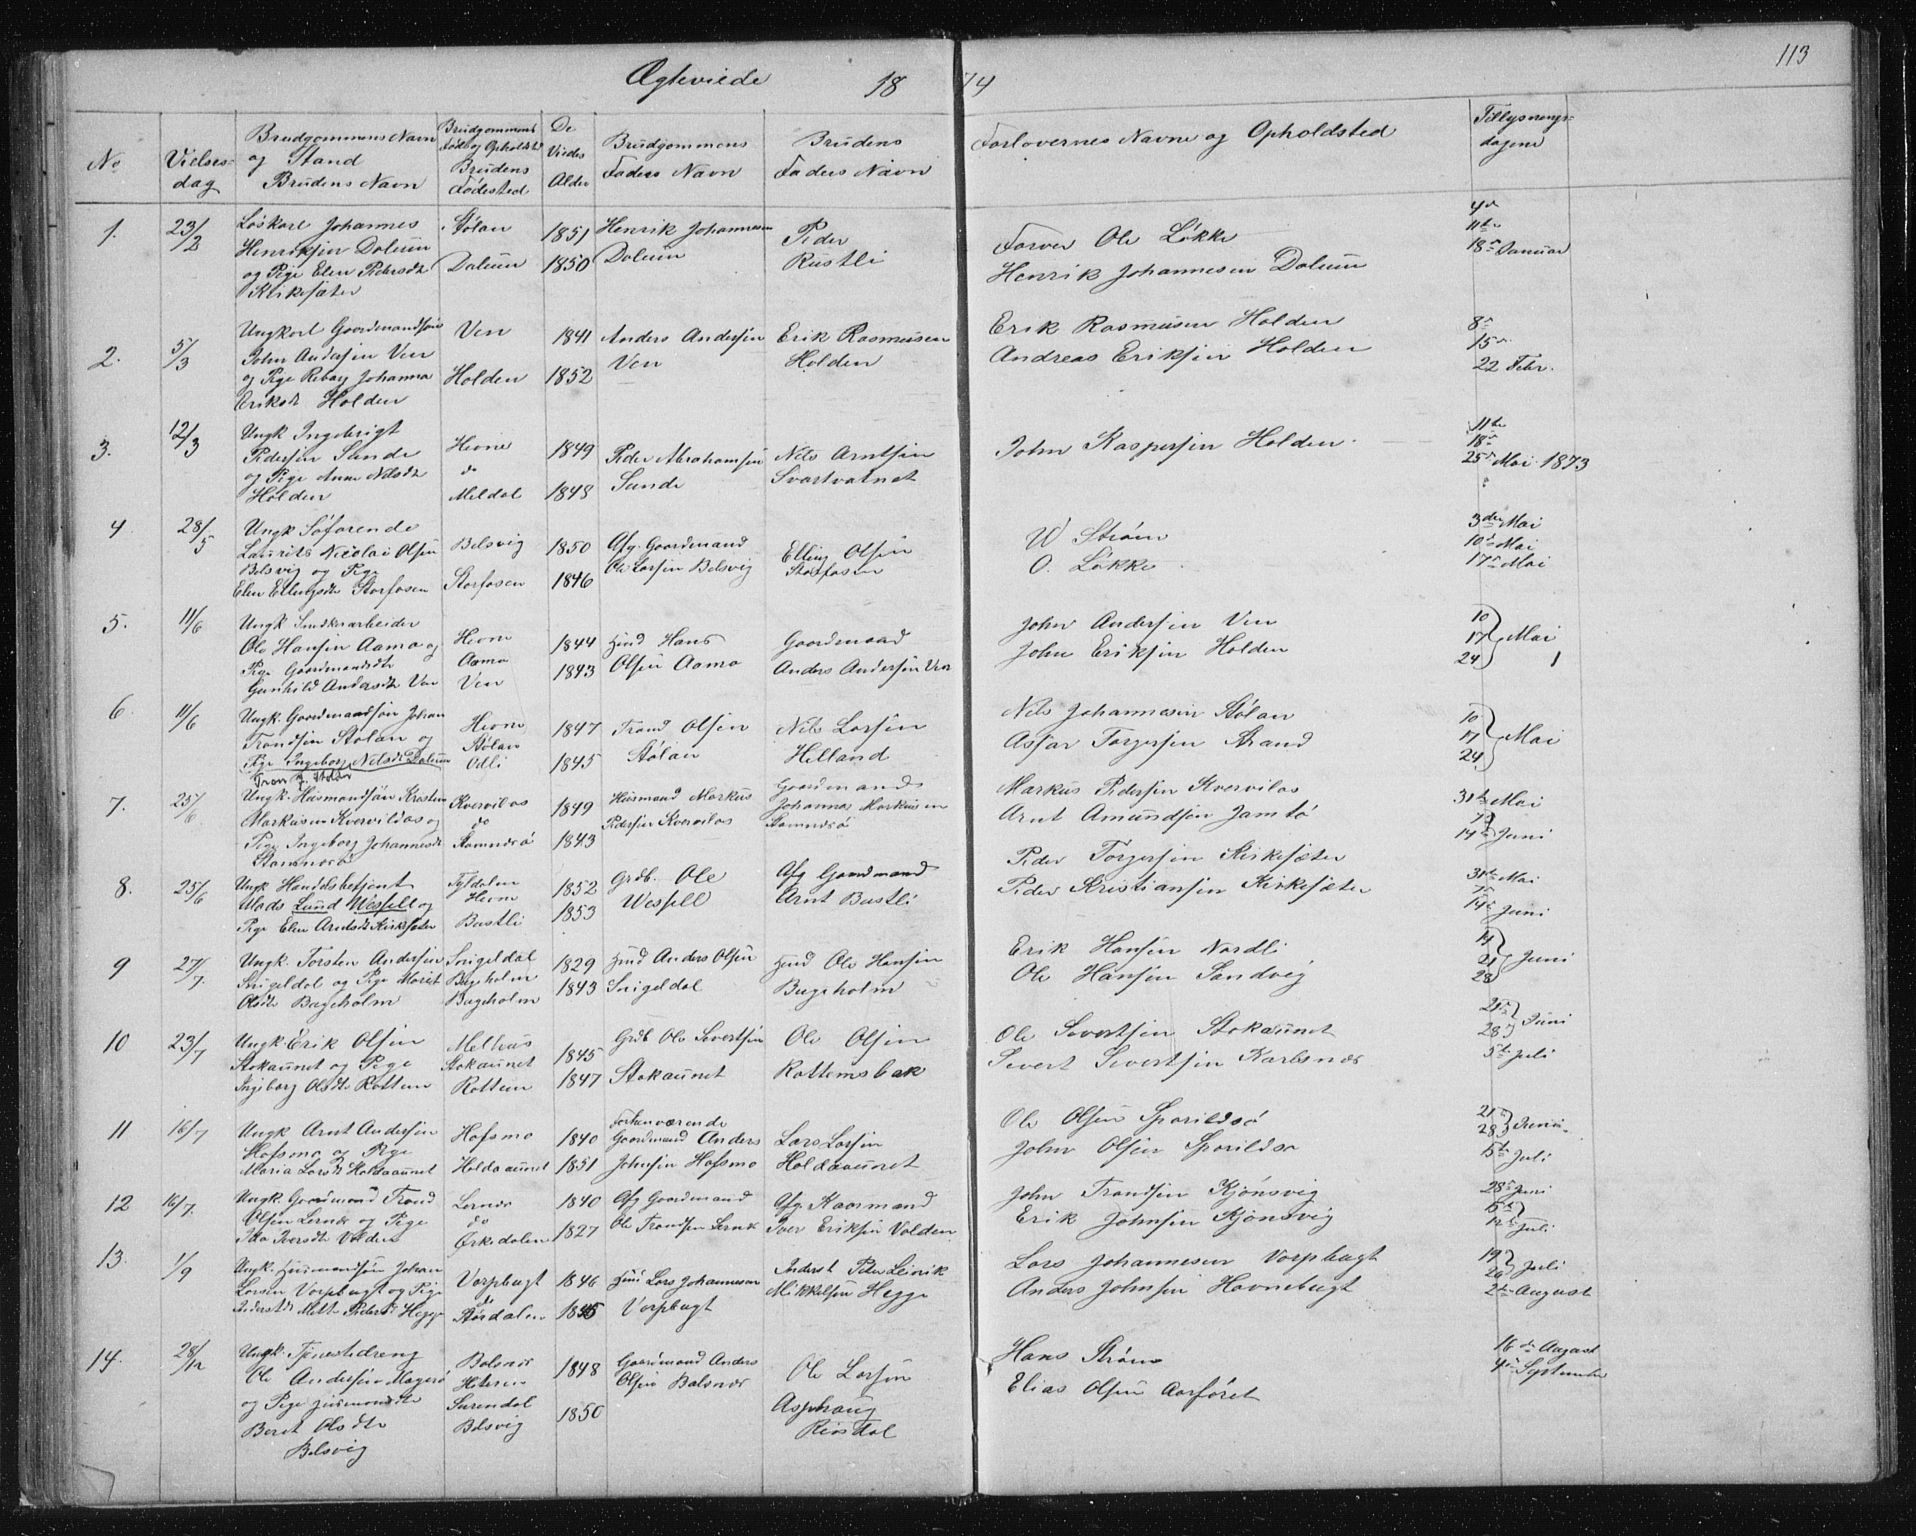 113
Ægteviede 1874
No
Vielses-
dag
Brudgommens Navn
og Stand
Brudens Navn
Brudgommens
Føde og Opholdst
Brudens
Fødested
De
Viedes
Alder
Brudgommens
Faders Navn
Brudens
Faders Navn
Forlovernes Navne og Opholdsted
Tillysnings-
dagene
1. 23/2
Løskarl Johannes
Henriksen Dalum
og Pige Elen Pedersdt
Kirkesæter
Stølan
Dalum
1851
1850
Henrik Johannesen
Dalum
Peder
Rustli
Farver Ole Løkke
Henrik Johannesen Dalum
4de
11te
18de Januar
2. 5/3
Ungkarl Gaardmandsøn
John Andersen Ven
og Pige Johanna
Eriksdt Holden
Ven
Holden
1841
1852
Anders Andersen
Ven
Erik Rasmusen
Holden
Erik Rasmusen Holden
Andreas Eriksen Holden
8de
15de
22 Febr.
3. 12/3
Ungk Ingebrigt
Pedersen Sunde
og Pige Anne Nilsdt
Holden
Hevne
do
Meldal
1849
1848
Peder Abrahamsen
Sunde
Nils Arntsen
Svartvatnet
John Kaspersen Holden
11te
18de
25de Mai 1873
4. 28/5
Ungk Søfarende
Laurits Nicolai Olsen
Belsvig og Pige
Elen Ellingsdt Storfosen
Belsvig
Storfosen
1850
1846
Afg. Gaardmand
Ole Larsen Belsvig
Elling Olsen
Storfosen
W Strøm
O. Løkke
3die Mai
10de Mai
17de Mai
5. 11/6
Ungk Snedkerarbeider
Ole Hansen Aamo og
Pige Gaardmandsdtr
Gunhild Andersdt Ven
Hevne
Aamo
Ven
1844
1843
Hmd Hans
Olsen Aamo
Gaardmand
Anders Andersen Ven
John Andersen Ven
John Eriksen Holden
10
17 Mai
24
6. 11/6
Ungk. Gaardmandsøn Johan
Trondsen Stølan og
Pige Ingeborg Nilsdt Dalum
Hevne
Stølan
Odli
1847
1845
Trond Olsen
Stølan
Nils Larsen
Helland
Nils Johannesen Stølan
Asfar Torgersen Strand
10
17 Mai
24
7. 25/6
Ungk. Husmandsøn Kristen
Markusen Kvervilaas og
Pige Ingeborg Johannesdt
Stamnesø
Kvervilas
do
Stamnesø
1849
1843
Husmand Markus
Pedersen Kvervilas
Gaardmand
Johannes Markusen
Stamnesø
Markus Pedersen Kvervilas
Arnt Amundsen Jamtø
31te Mai
7de
14de Juni
8. 25/6
Ungk Handelsbetjent
Mads Lund Wessell og
Pige Elen Arntsdt Kirksæter
Tydalen
Hevne
Bustli
1852
1853
Grdb. Ole
Wessell
Afg Gaardmand
Arnt Bustli
Peder Torgersen Kirkesæter
Peder Kristiansen Kirkesæter
31te Mai
7de
14de Juni
9 27/7.
Ungk. Torsten Andersen
Snigeldal og Pige Marit
Olsdt Bugeholm
Snigeldal
Bugeholm
Bugeholm
1829
1843
Hmd Anders Olsen
Snigeldal
Hmd Ole Hansen
Bugeholm
Erik Hansen Nordli
Ole Hansen Sandvig
14
21 Juni
28
10 23/7
Ungk. Erik Olsen
Stokaunet og Pige
Ingeborg Olsdt Rottem
Melhus
Stokaunet
Rottem
1845
1847
Grdb Ole Sivertsen
Stokaunet
Ole Olsen
Rottemsbak
Ole Sivertsen Stokaunet
Sivert Sivertsen Karlsnes
21de
28de Juni
5te Juli
11 16/7
Ungk Arnt Andersen
Hofsmo og Pige
Maria Larsdt Haldaaunet
Hofsmo
Haldaaunet
1840
1851
Forhenværende
Gaardmand Anders
Johnsen Hofsmo
Lars Larsen
Haldaaunet
Ole Olsen Sporildsø
John Olsen Sporildsø
21de
28 Juni
5te Juli
12 16/7.
Ungk. Gaardmand Trond
Olsen Lernes og Pige
Iversdt Volden
Lernes
do
Ørkedalen
1840
1827
Afg Gaardmand
Ole Trondsen Lernes
Afg Kaarmand
Iver Eriksen Volden
John Trondsen Kjønsvig
Erik Johnsen Kjønsvig
28de Juni
5te
12te Juli
13. 1/9
Ungk. Husmandsøn Johan
Larsen Vorpbugt og Pige
Mette Pedersdt Hegge
Vorpbugt
do
Størdalen
1846
1845
Husm Lars Johannesen
Vorpbugt
Inderst Peder Leinik
Mikkelsen Hegge
Lars Johannesen Vorpbugt
Anders Johnsen Havnebugt
19
26 Juli
2de August
14. 28/12
Ungk. Tjenestedreng
Ole Andersen Magerø
og Pige Husmandsdtr
Beret Olsdtr
Belsvig
Balsnes
Hiteren
Surendal
Belsvig
1848
1850
Gaardmand Anders
Olsen Balsnes
Ole Larsen
Asphaug
Rindal
Hans Strøm
Elias Olsen Aarsøret
16de August
4de September